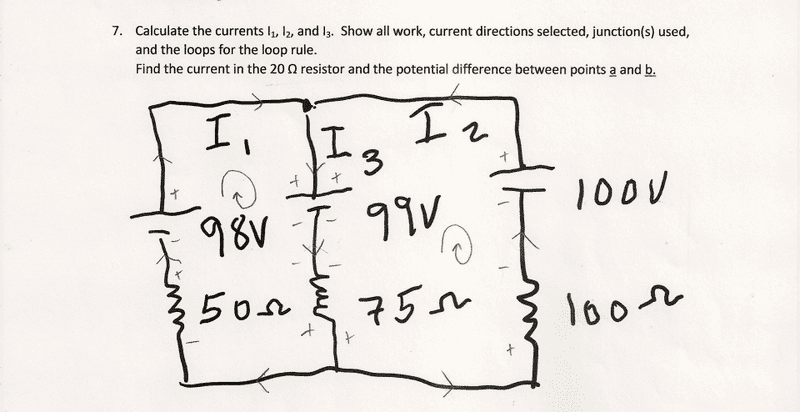 7. Calculate the currents I₁, I₂, and I₃. Show all work, current directions selected, junction(s) used,
and the loops for the loop rule.
Find the current in the 20 Ω resistor and the potential difference between points a and b.
I₁ I₃ I₂
98V 99V 100V
50Ω 75Ω 100Ω